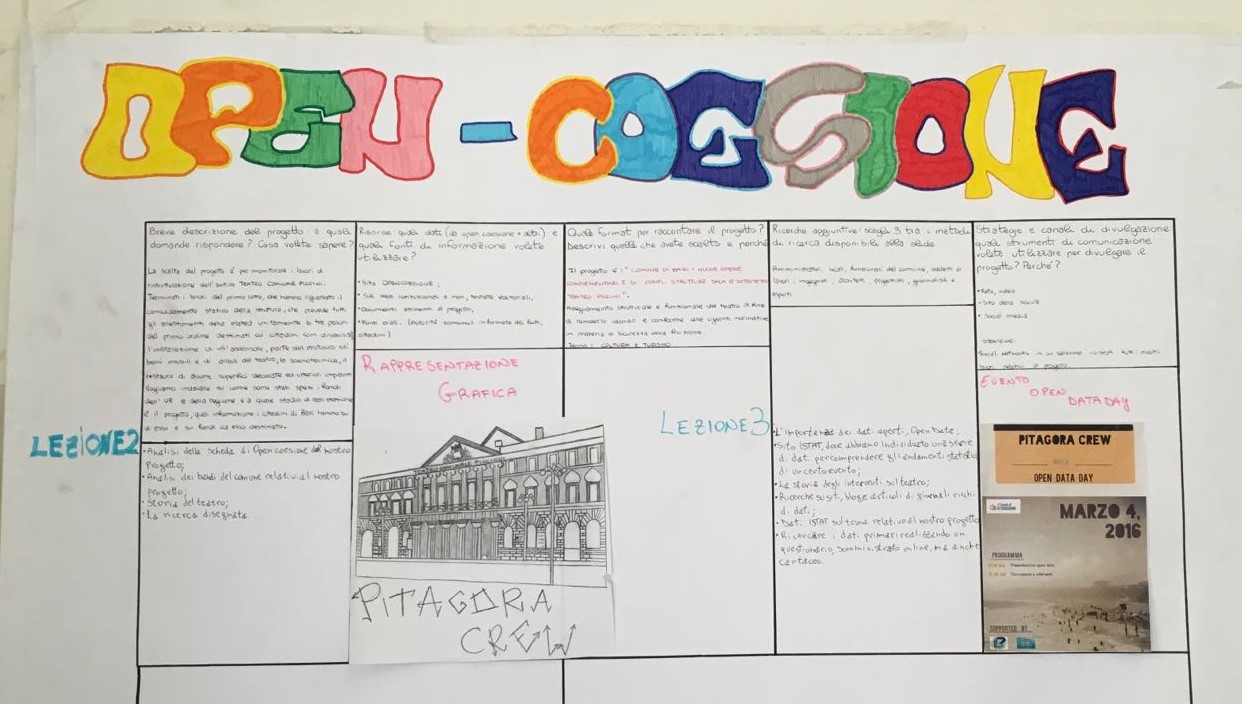 OPEN - COESIONE
Breve descrizione del progetto: a quali
domande rispondere? Cosa volete sapere?
La scelta del progetto è per monitorare i lavori di
ristrutturazione dell'antico Teatro Comunale Piccinni.
Terminati i lavori del primo lotto, che hanno riguardato il
consolidamento statico della struttura, che prevede tutti
gli allestimenti della platea unitamente a tre palchi
del primo ordine destinati ai cittadini con disabilità
l'installazione di un ascensore, parte del restauro di
beni mobili e di arredi del teatro, la scenotecnica, il
restauro di alcune superfici decorate ed ulteriori impianti
Vogliamo indagare su come sono stati spesi i fondi
dell'UE e della regione e a quale stadio di realizzazione
è il progetto, quali informazioni i cittadini di Bari hanno su
di esso e sui fondi ad esso destinato.
LEZIONE2
• Analisi della scheda di Opencoesione del nostro
progetto;
• Analisi dei bandi del comune relativi al nostro
progetto;
• Storia del teatro;
• La ricerca disegnata.
Risorse: quali dati (da open coesione + altri) e
quali fonti di informazione volete
utilizzare?
• Sito OPENCOESIONE;
• Siti web istituzionali e non, testate editoriali,
• Documenti attinenti al progetto,
• Fonti orali. (Autorità comunali informate dei fatti,
cittadini)
RAPPRESENTAZIONE
GRAFICA
PITAGORA
CREW
Quali format per raccontare il progetto?
Descrivi quello che avete scelto e perché
Il progetto è: "COMUNE DI BARI - NUOVE OPERE
TEATRO PICCINNI".
Adeguamento strutturale e funzionale del teatro al fine
di renderlo idoneo e conforme alle vigenti normative
in materia di sicurezza alla fruizione.
Tema: CULTURA E TURISMO
LEZIONE3
Ricerche aggiuntive: scegli 3 tra i metodi
di ricerca disponibili sulla slide.
Amministratori locali, funzionari del comune, addetti ai
lavori: ingegneri, architetti, progettisti, giornalisti e
esperti
• L'importanza dei dati aperti, Open Data;
• Sito ISTAT, dove abbiamo individuato una serie
di dati per comprendere gli andamenti statistici
di un certo evento;
• La storia degli interventi sul teatro;
• Ricerche su siti, blog e articoli di giornali ricchi
di dati;
• Dati ISTAT sul tema relativo al nostro progetto
• Ricercare i dati primari realizzando un
questionario, somministrato online, ma anche
cartaceo.
Strategie e canali di divulgazione
quali strumenti di comunicazione
volete utilizzare per divulgare il
progetto? Perché?
• Foto, video
• Sito della scuola
• Social media
STRATEGIE:
EVENTO
OPEN
DATA DAY
PITAGORA CREW
OPEN DATA DAY
MARZO 4,
2016
PROGRAMMA
SUPPORTED BY